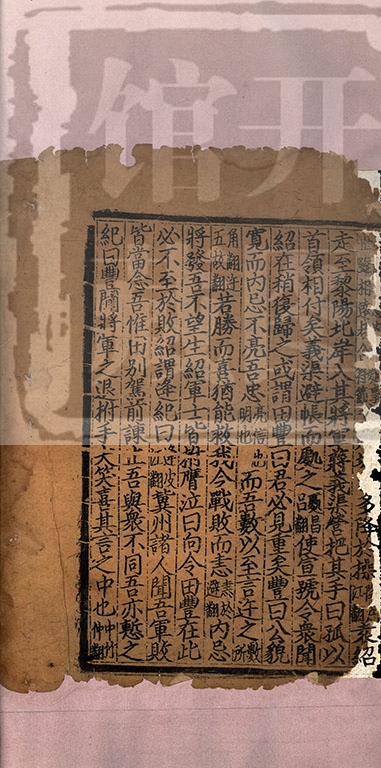 开馆
走至黎陽北岸入其將軍蔣義渠營把其手曰孤以
首領相付矣義渠避帳而處之處昌呂翻使宣號令衆聞
紹在稍復歸之或謂田豐曰君必見重矣豐曰公貌
寬而内忌不亮吾忠亮信也明也而吾數以至言迕之數所
角翻迕五故翻若勝而喜猶能救我今戰敗而恚恚於避翻内忌
將發吾不望生紹軍士皆拊膺泣曰向令田豐在此
必不至於敗紹謂逢紀曰逢皮江翻冀州諸人聞吾軍敗
皆當念吾惟田别駕前諫止吾與衆不同吾亦慙之
紀曰豐聞將軍之退拊手大笑喜其言之中也中竹仲翻